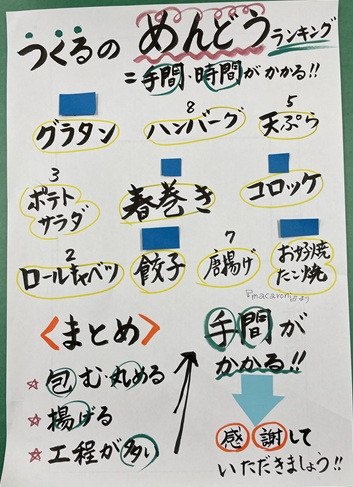 つくるの めんどうランキング
=手間・時間がかかる!!
グラタン
8
ハンバーグ
5
天ぷら
3
ポテト
サラダ
春巻き
コロッケ
2
ロールキャベツ
餃子
7
唐揚げ
お好焼
たこ焼
<まとめ>
☆ 包む・丸める
☆ 揚げる
☆ 工程が多い
手間が
かかる!!
感謝して
いただきましょう!!